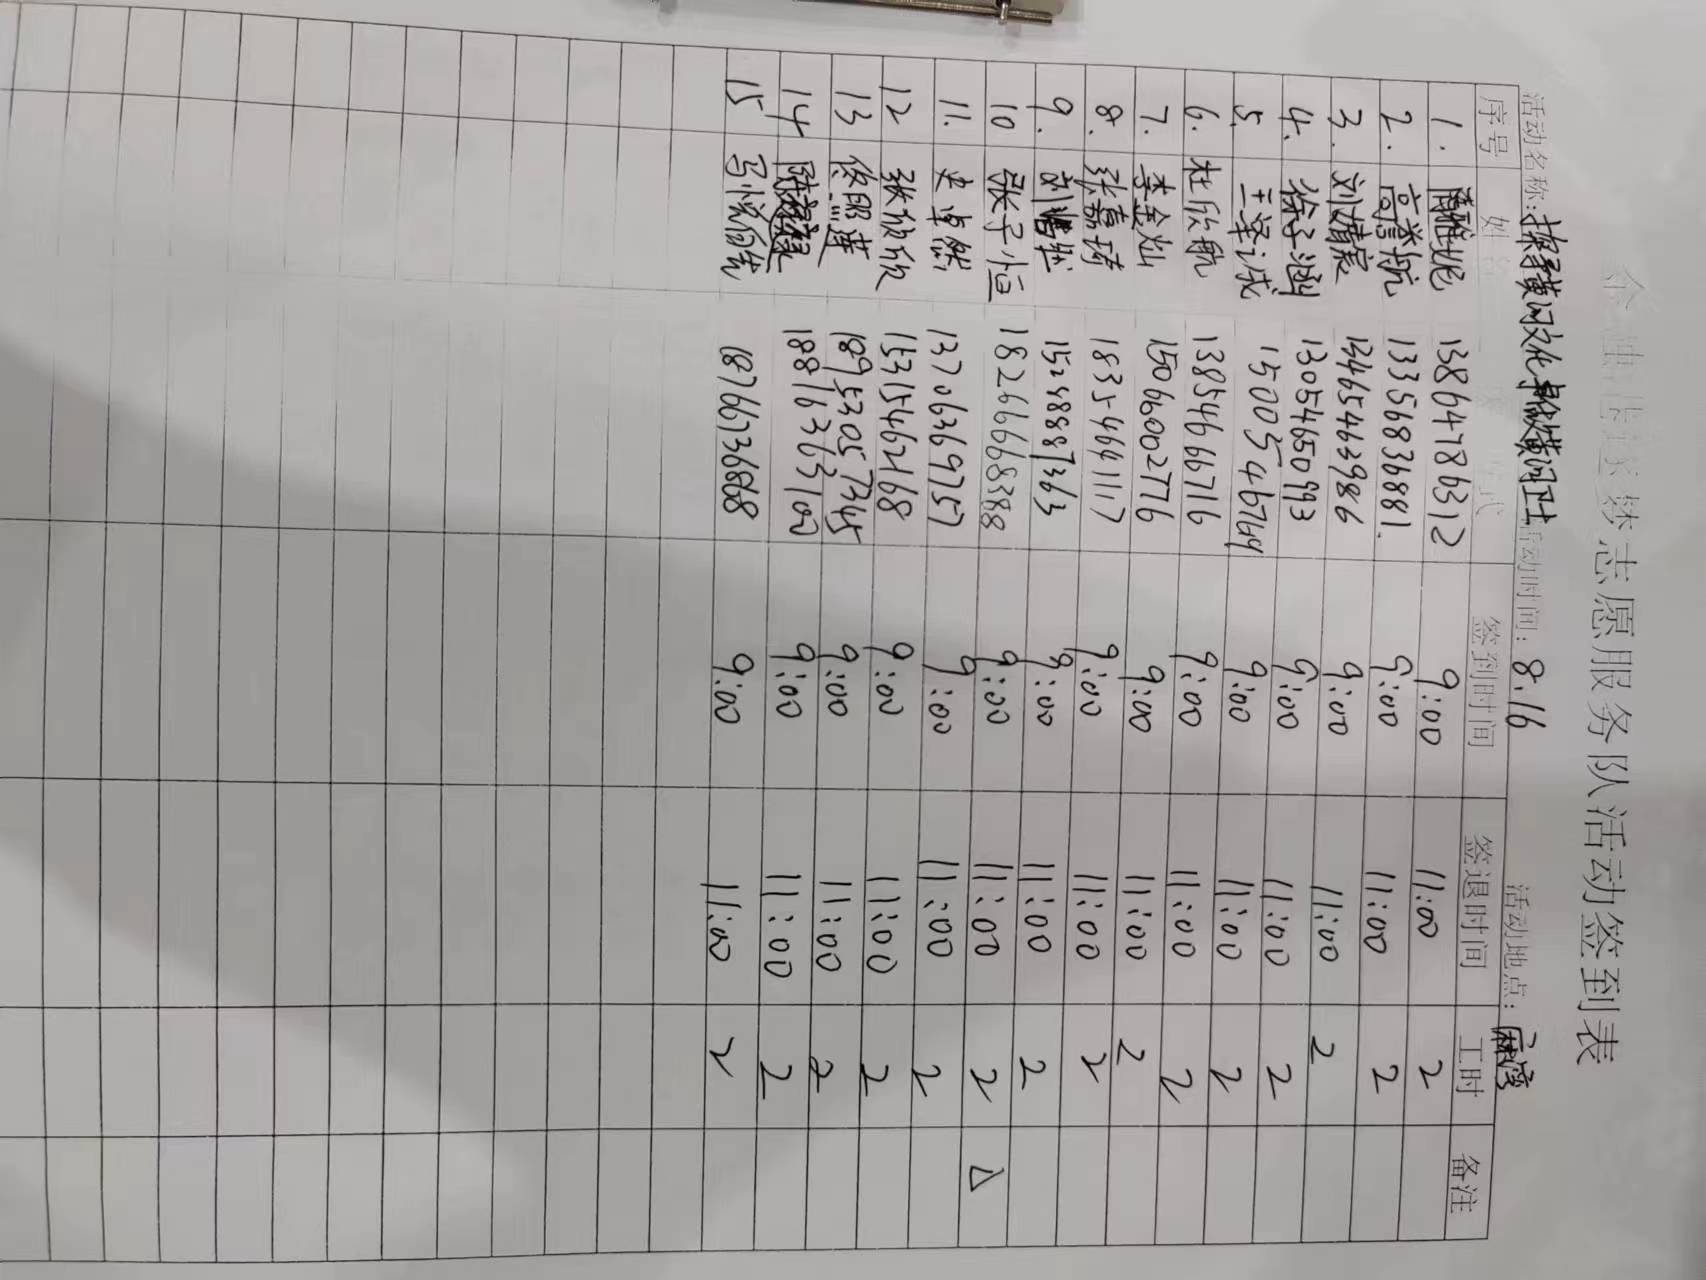 志愿服务队活动签到表
活动名称: 探寻黄河文化 争做黄河卫士 活动时间: 8.16 活动地点: 麻湾
序号 姓名 式 签到时间 签退时间 工时 备注
1. 13864786312 9:00 11:00 2
2. 高誉航 13356836881. 9:00 11:00 2
3. 刘婧宸 13465463986 9:00 11:00 2
4. 徐子涵 13054650993 9:00 11:00 2
5. 王泽诚 15005546764 9:00 11:00 2
6. 杜欣航 13854666716 9:00 11:00 2
7. 李金灿 15066002776 9:00 11:00 2
8. 张嘉琦 18354661117 9:00 11:00 2
9. 15288887363 9:00 11:00 2
10 张子恒 18266668388 9:00 11:00 2 △
11. 史卓然 13706369757 9:00 11:00 2
12 张欣欣 13315462168 9:00 11:00 2
13 佟熙莲 18953057345 9:00 11:00 2
14 18816363100 9:00 11:00 2
15 马悦 18766736868 9:00 11:00 2